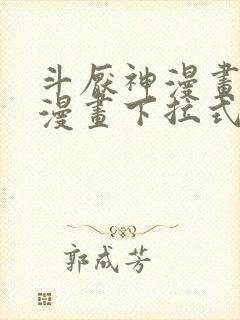 斗厭神漫畫
漫畫下拉式
郭成芳